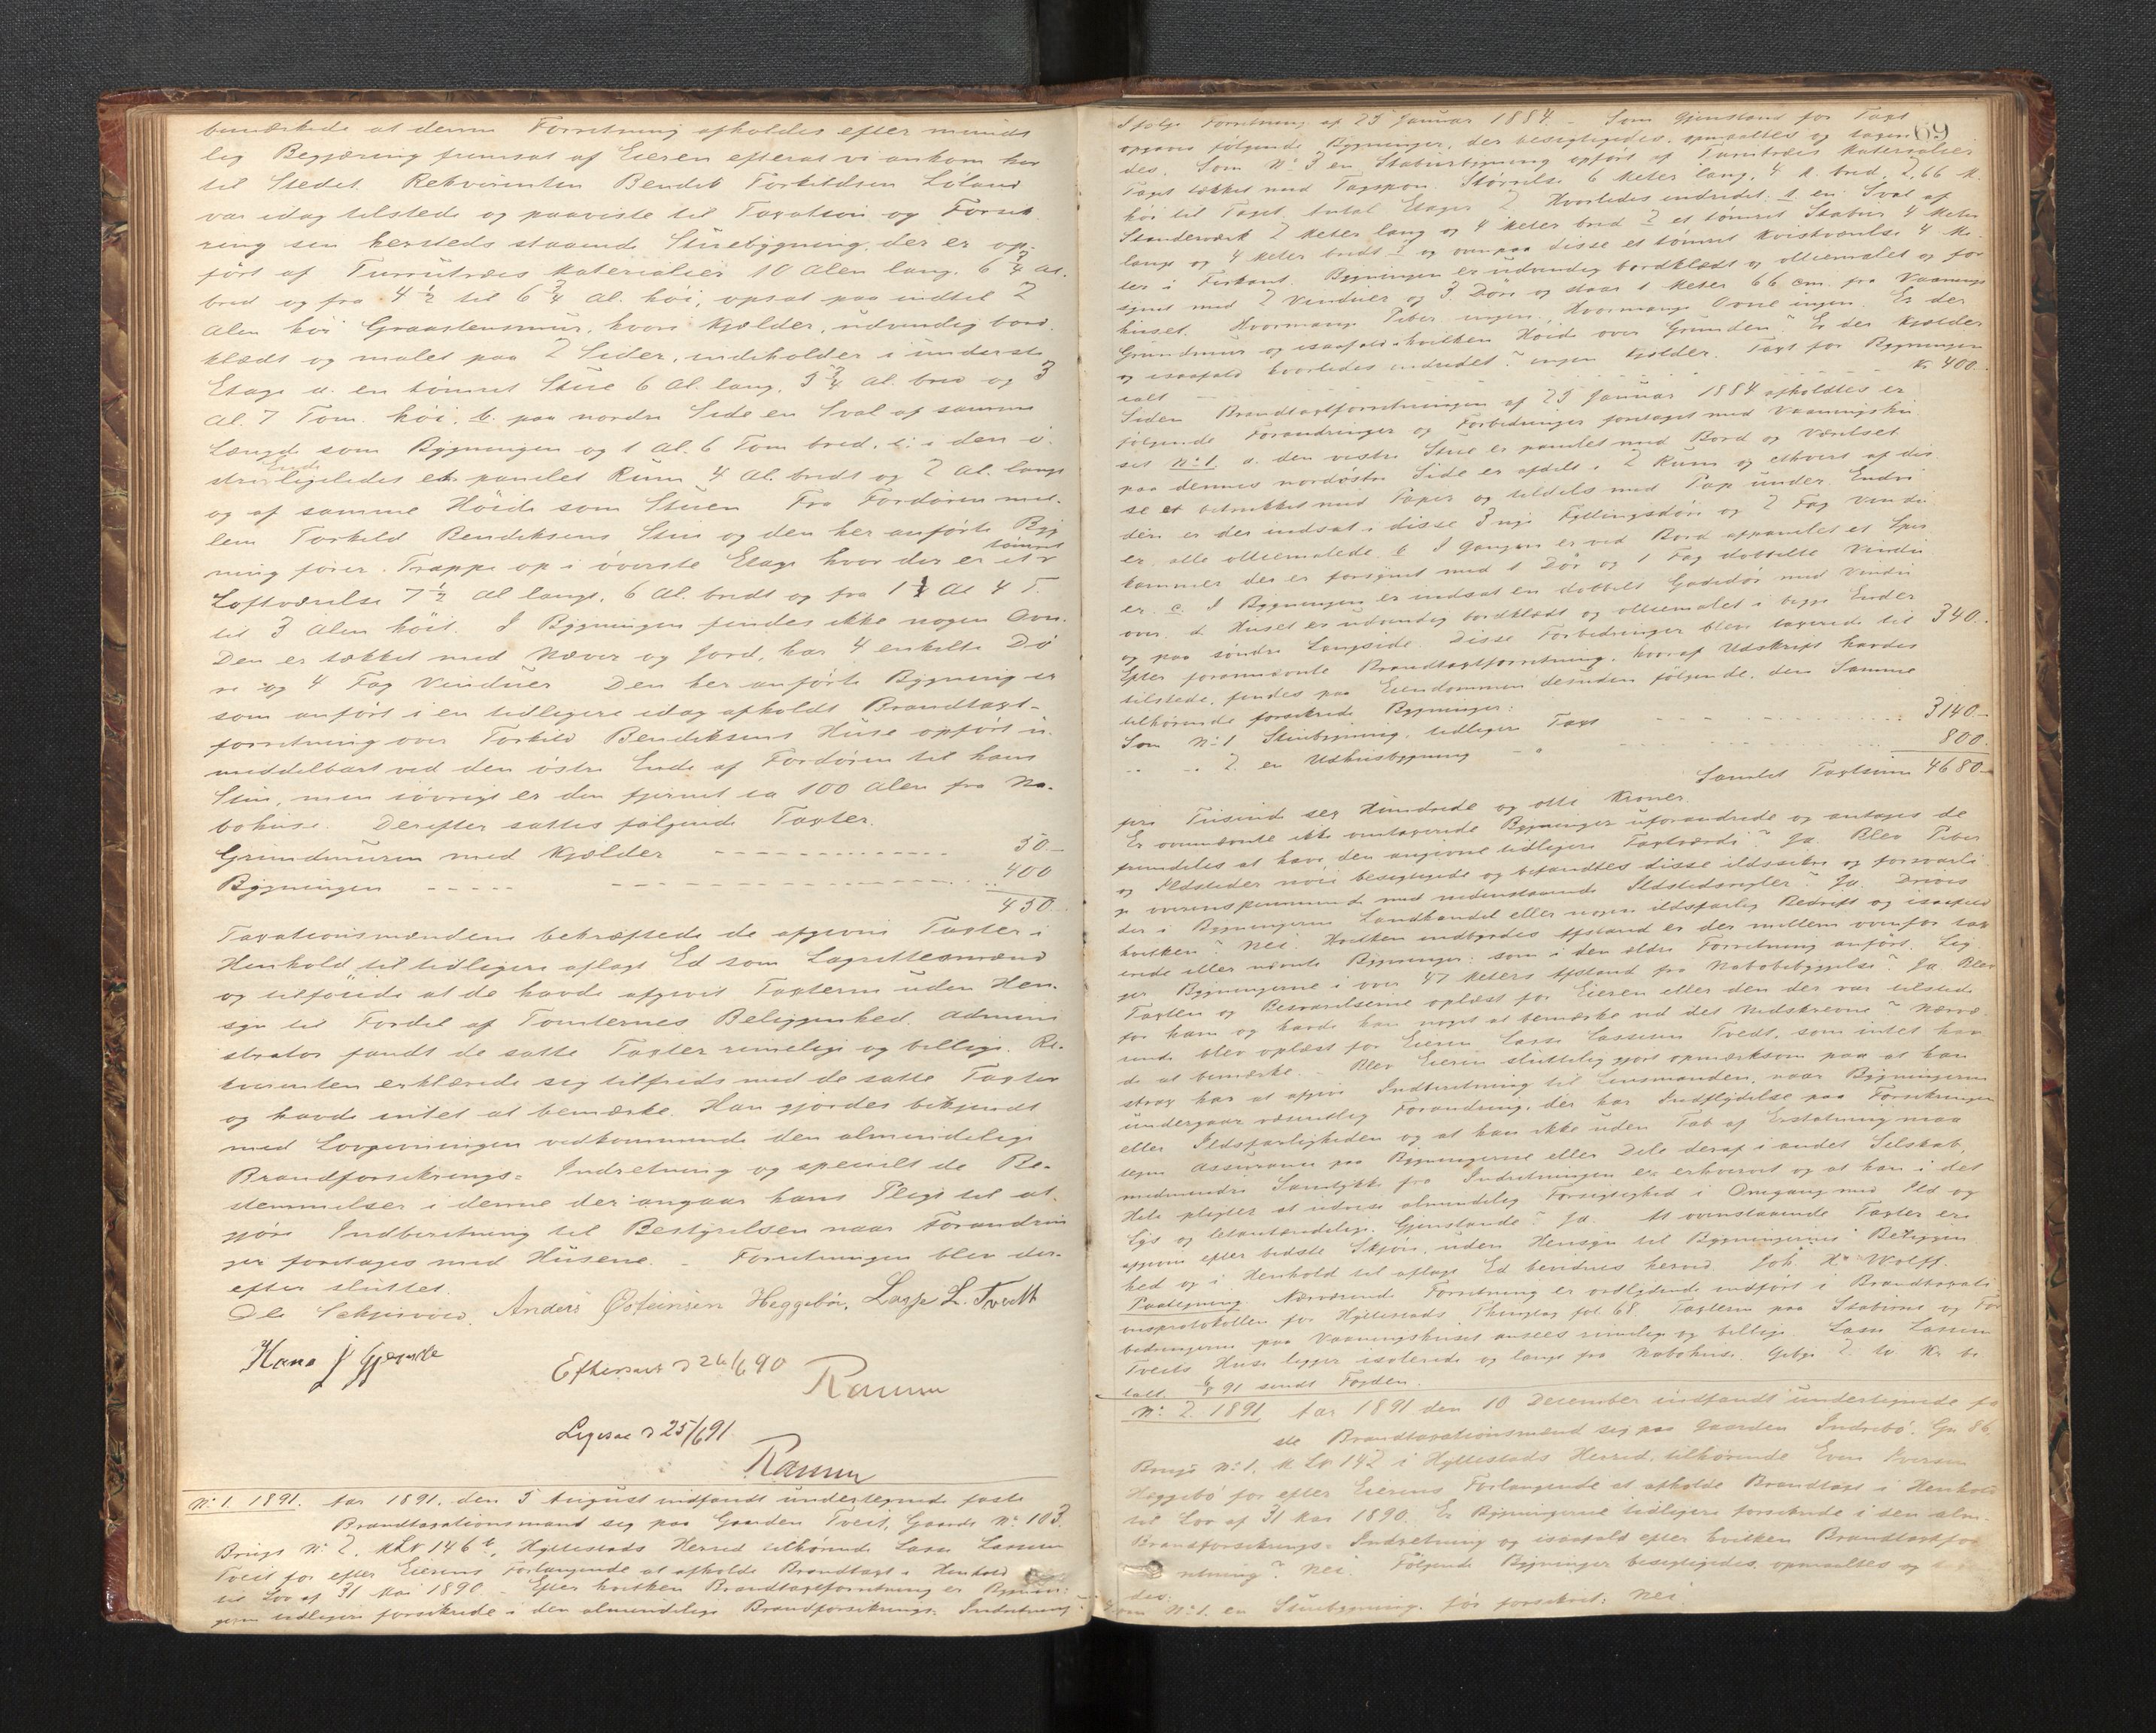 bemærkede at denne Forretning afholdes efter mundt
lig Begjæring fremsat af Eieren efterat vi ankom her
til Stedet. Rekvirenten Bendik Torkildsen Løland
var idag tilstede og paaviste til Taxation og Forsik
ring sin hersteds staaende Stuebygning, der er op-
ført af Furrutræes Materialier 10 Alen lang, 6 3/4 Al.
bred og fra 4 1/2 til 6 3/4 Al. høi, opsat paa indtil 2
Alen høi Graastensmur, hvori Kjælder, udvendig bord
klædt og malet paa 2 Sider, indeholder i underste
Etage a. en tømret Stue 6 Al. lang, 5 3/4 Al. bred og 3
Al. 7 Tom. høi, b. paa nordre Side en Sval af samme
Længde som Bygningen og 1 Al. 6 Tom bred, c. i den ø-
stre Ende ligeledes et panelet Rum 4 Al. bredt og 2 Al. langt
og af samme Høide som Stuen. Fra Fordøren mel-
lem Torkild Bendiksens Stue og den her anførte Byg
ning fører Trappe op i øverste Etage hvor der er et tømret
Loftværelse 7 1/2 Al langt, 6 Al. bredt og fra 1 Al 4 T.
til 3 Alen høit. I Bygningen findes ikke nogen Ovn.
Den er tækket med Næver og Jord, har 4 enkelte Dø
re og 4 Fag Vinduer. Den her anførte Bygning er
som anført i en tidligere idag afholdt Brandtaxt-
forretning over Torkild Bendiksens Huse opført u-
middelbart ved den østre Ende af Fordøren til hans
Stue, men iøvrigt er den fjernet ca 100 Alen fra Na-
bohuse. Derefter sattes følgende Taxter.
Grundmuren med Kjælder - - - 50.-
Bygningen - - - 400
450.
Taxationsmændene bekræftede de afgivne Taxter i
Henhold til tidligere aflagt Ed som Lagrettesmænd
og tilføiede at de havde afgivet Taxterne uden Hen-
syn til Fordel af Tomternes Beliggenhed. Admini
strator fandt de satte Taxter rimelige og billige. Re-
kvirenten erklærede sig tilfreds med de satte Taxter
og havde intet at bemærke. Han gjordes bekjendt
med Lovgivningen vedkommende den almindelige
Brandforsikrings- Indretning og specielt de Be-
stemmelser i denne der angaar hans Pligt til at
gjøre Indberetning til Bestyrelsen naar Forandrin
ger foretages med Husene. - Forretningen blev der-
efter sluttet.
Anders Østeinsen Heggebø, Lasse L. Tveitt
Hans J
Efterseet d 26/6 90
Ligesaa d 25/6 91
No 1. 1891. Aar 1891, den 5 August indfandt undertegnede faste
Brandtaxationsmænd sig paa Gaarden Tveit, Gaards No 103
Brugs No 2, M.L.No 146 b, Hyllestads Herred tilhørende Lasse Lassen
Tveit for efter Eierens Forlangende at afholde Brandtaxt i Henhold
til Lov af 31 Mai 1890. - Efter hvilken Brandtaxtforretning er Bygnin-
gerne tidligere forsikrede i den almindelige Brandforsikrings- Indretning?
69
Ifølge Forretning af 25 Januar 1884. - Som Gjenstand for Taxt
opgaves følgende Bygninger, der besigtigedes, opmaaltes og taxere
des. Som No 3 en Stabursbygning opført af Furutræes Materialier
Taget tækket med Tagspon. Størrelse 6 Meter lang, 4 M. bred, 2,66 M.
høi til Taget. Antal Etager 2. Hvorledes indredet: 1. en Sval af
Standerværk 2 Meter lang og 4 Meter bred 2 et tømret Stabur 4 Meter
langt og 4 Meter bredt 3 og ovenpaa disse et tømret Kvistværelse 4 Me-
ter i Firkant. Bygningen er udvendig bordklædt og oliemalet og for
synet med 2 Vinduer og 3 Døre og staar 1 Meter 66 cm. fra Vaanings
huset. Hvormange Piber ingen, Hvormange Ovne ingen. Er der
Grundmur og isaafald hvilken Høide over Grunden? Er der Kjælder
og isaafald hvorledes indredet? ingen Kjælder. Taxt for Bygningen
ialt - - - Kr 400.
Siden Brandtaxtforretningen af 25 Januar 1884 afholdtes er
følgende Forandringer og Forbedringer foretaget med Vaaningshu
set No 1. a. den vestre Stue er panelet med Bord og Værelset
paa dennes nordøstre Side er afdelt i 2 Rum og ethvert af dis
se er betrukket med Papir og tildels med Pap under. Endvi
dere er der indsat i disse 3 nye Fyllingsdøre og 2 Fag Vindu
er, alle oliemalede. b. I Gangen er ved Bord afpanelet et Spis
kammer der er forsynet med 1 Dør og 1 Fag dobbelte Vindu
er. c. I Bygningen er indsat en dobbelt Gadedør med Vindu
over. d. Huset er udvendig bordklædt og oliemalet i begge Ender
og paa søndre Langside. Disse Forbedringer blev taxerede til 340.
Efter forannævnte Brandtaxtforretning, hvoraf Udskrift havdes
tilstede, findes paa Eiendommen desuden følgende, den Samme
tilhørende forsikrede Bygninger:
Som No 1 Stuebygning, tidligere Taxt - - - 3140.-
" - 2 en Udhusbygning - " - - - 800.
Samlet Taxtsum 4680.-
fire Tusind sex Hundrede og otti Kroner.
Er ovennævnte ikke omtaxerede Bygninger uforandrede og antages de
fremdeles at have den angivne tidligere Taxtværdi? Ja. Blev Piber
og Ildsteder nøie besigtigede og befandtes disse ildssikre og forsvarli
ge overensstemmende med nedenstaaende Ildstedsregler? Ja. Drives
der i Bygningerne Landhandel eller nogen ildsfarlig Bedrift og isaafald
hvilken? Nei. Hvilken indbyrdes Afstand er der mellem ovenfor tax
erede eller nævnte Bygninger: som i den ældre Forretning anført. Lig
ger Bygningerne i over 47 Meters Afstand fra Nabobebyggelse? Ja. Blev
Taxten og Besvarelserne oplæst for Eieren eller den der var tilstede
for ham og havde han noget at bemærke ved det Nedskrevne? Nærvæ
rende blev oplæst for Eieren Lasse Lassesen Tvedt, som intet hav
de at bemærke. - Blev Eieren sluttelig gjort opmærksom paa at han
strax har at afgive Indberetning til Lensmanden, naar Bygningerne
undergaar væsentlig Forandring, der har Indflydelse paa Forsikringen
eller Ildsfarligheden og at han ikke uden Tab af Erstatning maa
tegne Assurance paa Bygningerne eller Dele deraf i andet Selskab,
medmindre Samtykke fra Indretningen er erhvervet og at han i det
Hele pligter at udvise almindelig Forsigtighed i Omgang med Ild og
Lys og letantændelige Gjenstande? Ja. At ovenstaaende Taxter ere
afgivne efter bedste Skjøn, uden Hensyn til Bygningernes Beliggen-
hed og i Henhold til aflagt Ed bevidnes herved. Joh. H. Wolff.
Paategning. Nærværende Forretning er ordlydende indført i Brandtaxati
onsprotokollen for Hyllestads Thinglag fol 68. Taxterne paa Staburet og For
bedringerne paa Vaaningshuset ansees rimelige og billige. Lasse Lassen
Tveits Huse ligger isolerede og langt fra Nabohuse. Gebyr 2. to Kr. be
talt. 6/8 91 sendt Fogden.
No 2. 1891 Aar 1891 den 10 December indfandt undertegnede fa
ste Brandtaxationsmænd sig paa Gaarden Indrebø, Gn 86,
Brugs No 1, M. Lo 142 i Hyllestads Herred, tilhørende Even Iversen
Heggebø for efter Eierens Forlangende at afholde Brandtaxt i Henhold
til Lov af 31 Mai 1890. Er Bygningerne tidligere forsikrede i den alm.
Brandforsikrings- Indretning og isaafald efter hvilken Brandtaxtfor
retning? Nei. Følgende Bygninger besigtigedes, opmaaltes og
des:
Som No 1. en Stuebygning, før forsikret: Nei.